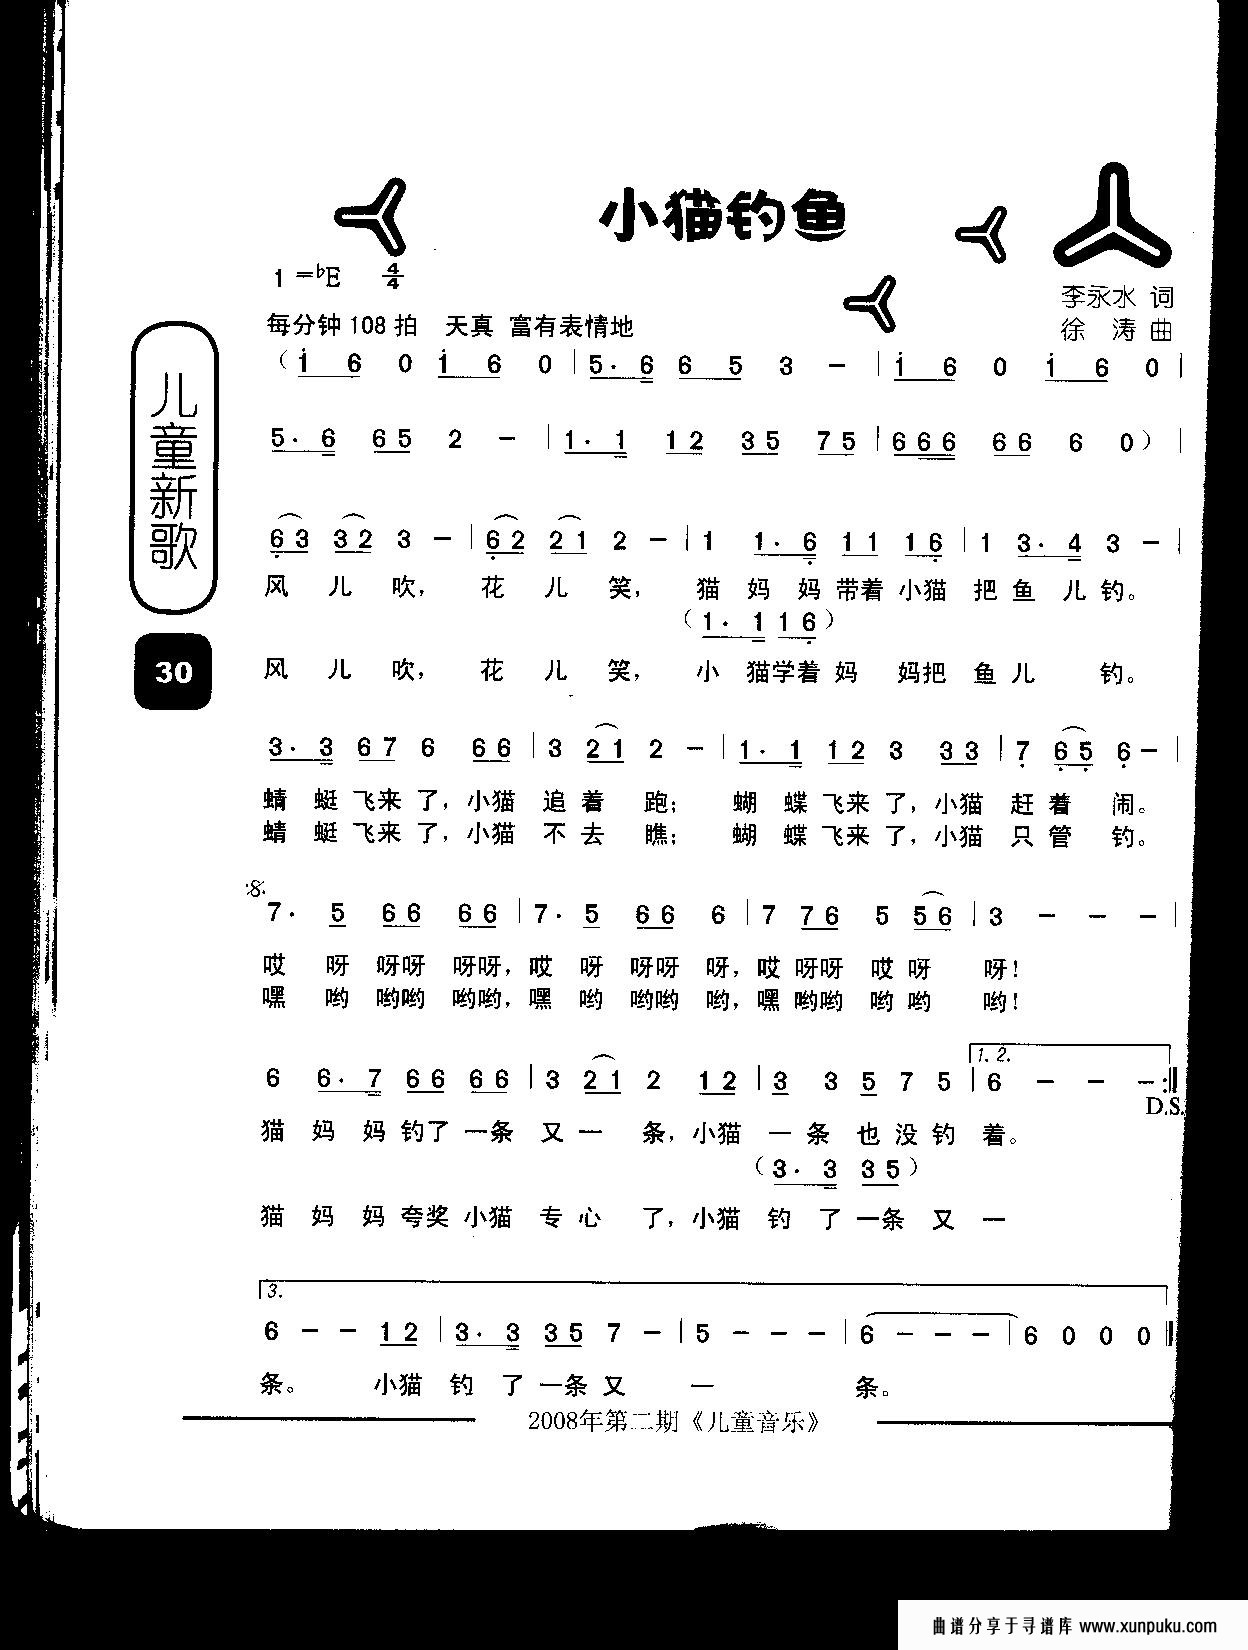 小猫钓鱼
1=♭E 4/4
李永水 词
每分钟108拍 天真 富有表情地
徐 涛 曲
(i 6 0 i 6 0 | 5· 6 6 5 3 - | i 6 0 i 6 0 |
5· 6 6 5 2 - | 1· 1 1 2 3 5 7 5 | 6 6 6 6 6 6 0) |
儿童新歌
6 3 3 2 3 - | 6 2 2 1 2 - | 1 1· 6 1 1 1 6 | 1 3· 4 3 - |
风 儿 吹, 花 儿 笑, 猫 妈 妈 带着 小猫 把 鱼 儿 钓。
(1· 1 1 6)
30
风 儿 吹, 花 儿 笑, 小 猫学着 妈 妈把 鱼 儿 钓。
3· 3 6 7 6 6 6 | 3 2 1 2 - | 1· 1 1 2 3 3 3 | 7 6 5 6 - |
蜻 蜓 飞来 了, 小猫 追 着 跑; 蝴 蝶 飞来 了, 小猫 赶 着 闹。
蜻 蜓 飞来 了, 小猫 不 去 瞧; 蝴 蝶 飞来 了, 小猫 只 管 钓。
7· 5 6 6 6 6 | 7· 5 6 6 6 | 7 7 6 5 5 6 | 3 - - - |
哎 呀 呀呀 呀呀, 哎 呀 呀呀 呀, 哎 呀呀 哎 呀 呀!
嘿 哟 哟哟 哟哟, 嘿 哟 哟哟 哟, 嘿 哟哟 哟 哟 哟!
1. 2.
6 6· 7 6 6 6 6 | 3 2 1 2 1 2 | 3 3 5 7 5 | 6 - - - :‖
D.S.
猫 妈 妈 钓了 一条 又 一 条, 小猫 一 条 也 没 钓 着。
(3· 3 3 5)
猫 妈 妈 夸奖 小猫 专 心 了, 小猫 钓 了 一条 又 一
3.
6 - - 1 2 | 3· 3 3 5 7 - | 5 - - - | 6 - - - | 6 0 0 0 ‖
条。 小猫 钓 了 一条 又 一 条。
2008年第二期《儿童音乐》
曲谱分享于寻谱库 www.xunpuku.com